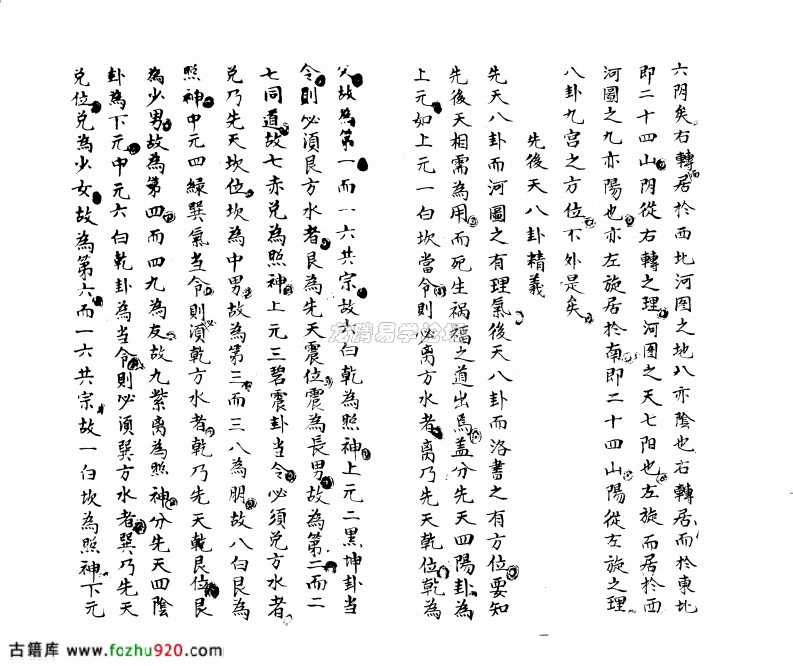 六阴矣右轉居於西北河图之地八亦陰也右轉居而於東北
即二十四山阴從右轉之理河图之天七阳也左旋而居於西
河圖之九亦陽也亦左旋居於南即二十四山陽從左旋之理
八卦九宫之方位不外是矣
先後天八卦精義
先天八卦而河圖之有理氣後天八卦而洛書之有方位要知
先後天相需為用而死生祸福之道出焉盖分先天四陽卦為
上元如上元一白坎當令則必离方水者离乃先天乾位乾為
父故為第一而一六共宗故六白乾為照神上元二黑坤卦当
令則必須艮方水者艮為先天震位震為長男故為第二而二
七同道故七赤兑為照神上元三碧震卦当令必須兑方水者
兑乃先天坎位坎為中男故為第三而三八為朋故八白艮為
照神中元四緑巽氣当令則湏乾方水者乾乃先天艮位艮
為少男故為第四而四九為友故九紫离為照神分先天四陰
卦為下元中元六白乾卦為当令則必湏巽方水者巽乃先天
兑位兑為少女故為第六而一六共宗故一白坎為照神下元
龙腾易学论坛
古籍库 www.fozhu920.com